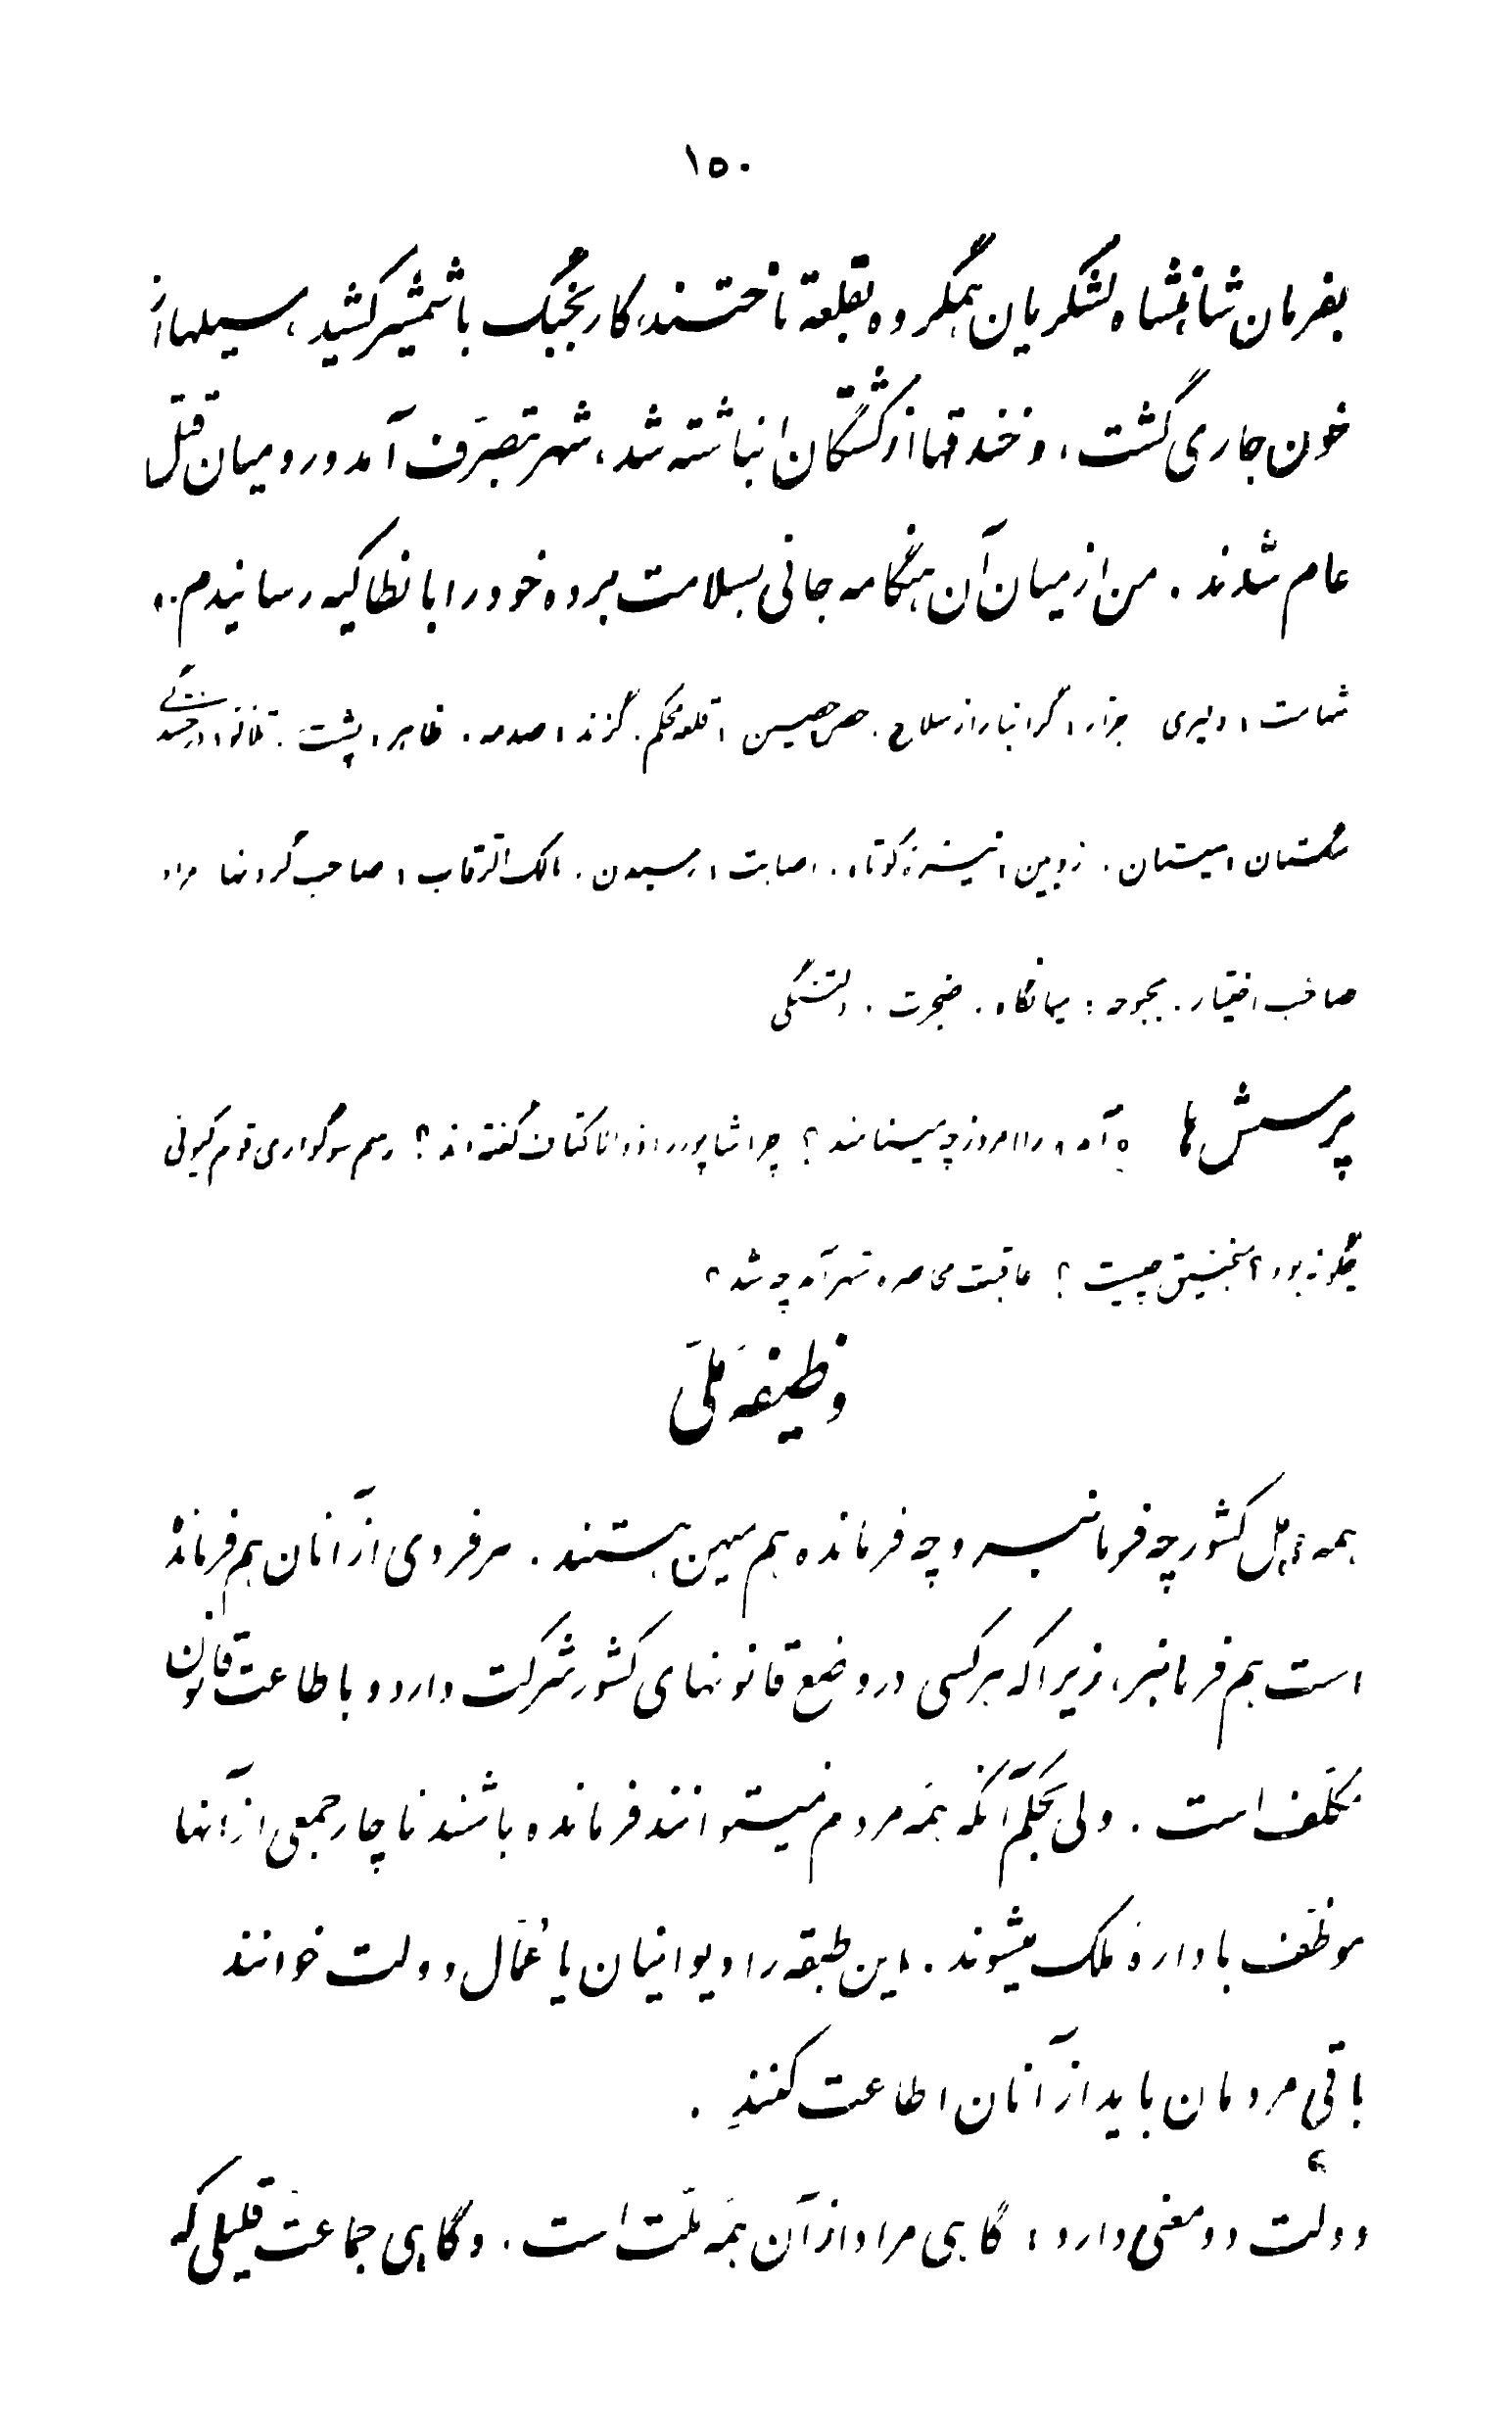 ۱۵۰
بفرمان شاهنشاه لشکریان همگروه بقلعة تاختند، کار بجنگ با شمشیر کشید، سیلها از
خون جاری گشت، و خندقها از کشتگان انباشته شد، شهر بتصرف آمد و رومیان قتل
عام شدند. من از میان آن هنگامه جانی بسلامت برده خود را بانطاکیه رسانیدم..
شهامت، دلیری جرار، گرانبار از سلاح. حصن حصین، قلعه محکم. گزند، صدمه. ظاهر، پشت.
سکستان، سیستان. زوبین، نیزه کوتاه. اصابت، رسیدن. مالک الرقاب، صاحب گردنها مراد
صاحب اختیار. بحبوحه: میانگاه. ضجرت. دلتنگی
پرسش ها آمد را امروز چه مینامند؟ چرا شاپور را ذوالاکتاف گفته‌اند؟ رسم سوگواری قوم کیونی
چگونه بود؟ منجنیق چیست؟ عاقبت محاصره شهر آمد چه شد؟
وظیفه ملی
همه اهل کشور چه فرمانبر و چه فرمانده هم میهن هستند. هر فردی از آنان هم فرمانده
است هم فرمانبر، زیرا که هر کسی در وضع قانونهای کشور شرکت دارد و باطاعت قانون
مکلف است. ولی بحکم آنکه همه مردم نمیتوانند فرمانده باشند ناچار جمعی از آنها
موظف باداره ملک میشوند. این طبقه را دیوانیان یا عمال دولت خوانند
باقی مردمان باید از آنان اطاعت کنند.
دولت دو معنی دارد: گاهی مراد از آن همه ملت است. و گاهی جماعت قلیلی که